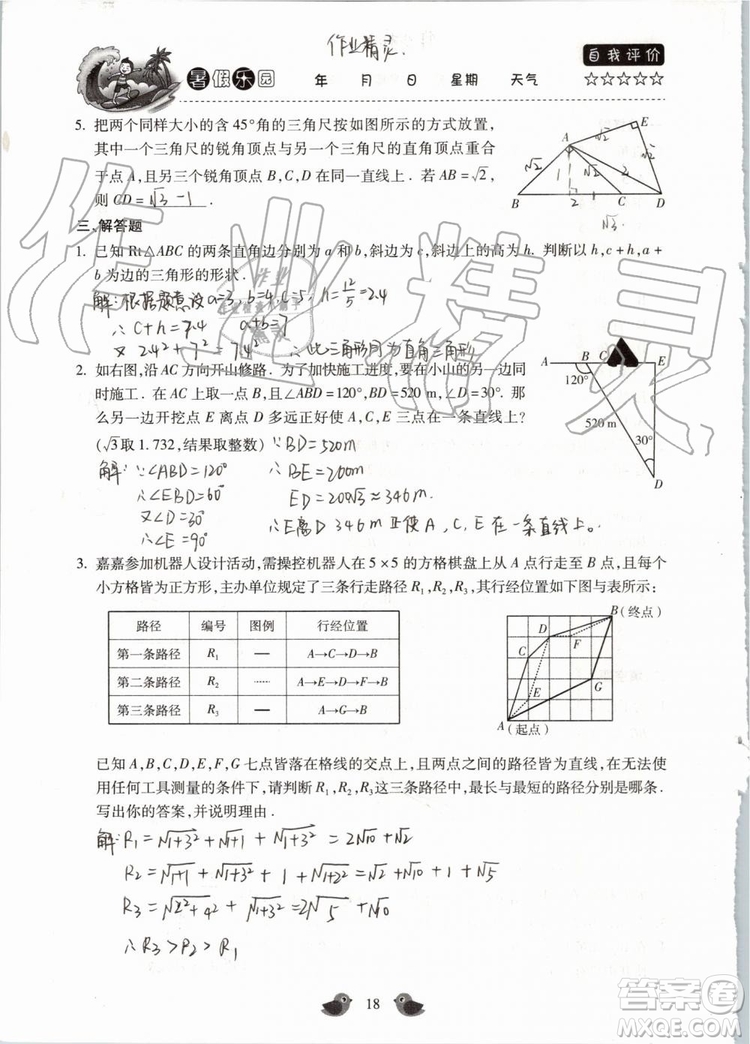 作业精灵.
自我评价
暑假乐园 年 月 日 星期 天气 ☆☆☆☆☆
5. 把两个同样大小的含45°角的三角尺按如图所示的方式放置,
其中一个三角尺的锐角顶点与另一个三角尺的直角顶点重合
于点A,且另三个锐角顶点B,C,D在同一直线上. 若AB=√2,
则CD= √3-1 .
A √2 E √2 √2 1 √2 2 B 2 C D √3
三、解答题
1. 已知Rt△ABC的两条直角边分别为a和b,斜边为c,斜边上的高为h. 判断以h,c+h,a+
b为边的三角形的形状.
解:根据题意设a=3,b=4,c=5,h=12/5=2.4
∴ c+h=7.4 a+b=7
又 2.4²+7²=7.4² ∴此三角形可为直角三角形
2. 如右图,沿AC方向开山修路. 为了加快施工进度,要在小山的另一边同
时施工. 在AC上取一点B,使∠ABD=120°,BD=520 m,∠D=30°. 那
么另一边开挖点E离点D多远正好使A,C,E三点在一条直线上?
(√3取1.732,结果取整数)
A B C E
120° 520 m 30° D
解:∵∠ABD=120°
∴∠EBD=60°
又∠D=30°
∴∠E=90°
∵BD=520m
∴BE=200m
ED=200√3≈346m.
∴E离D 346m正使A,C,E在一条直线上。
3. 嘉嘉参加机器人设计活动,需操控机器人在5×5的方格棋盘上从A点行走至B点,且每个
小方格皆为正方形,主办单位规定了三条行走路径R₁,R₂,R₃,其行经位置如下图与表所示:
路径 编号 图例 行经位置
第一条路径 R₁ — A→C→D→B
第二条路径 R₂ ······ A→E→D→F→B
第三条路径 R₃ — A→G→B
B(终点)
D F
C
G
E
A (起点)
已知A,B,C,D,E,F,G七点皆落在格线的交点上,且两点之间的路径皆为直线,在无法使
用任何工具测量的条件下,请判断R₁,R₂,R₃这三条路径中,最长与最短的路径分别是哪条.
写出你的答案,并说明理由.
解:R₁=√1+3²+√1+1+√1+3²=2√10+√2
R₂=√1+1+√1+3²+1+√1+2²=√2+√10+1+√5
R₃=√2²+4²+√1+3²=2√5+√10
∴R₃>R₂>R₁
18
作业精灵
答案圈
MXQE.COM